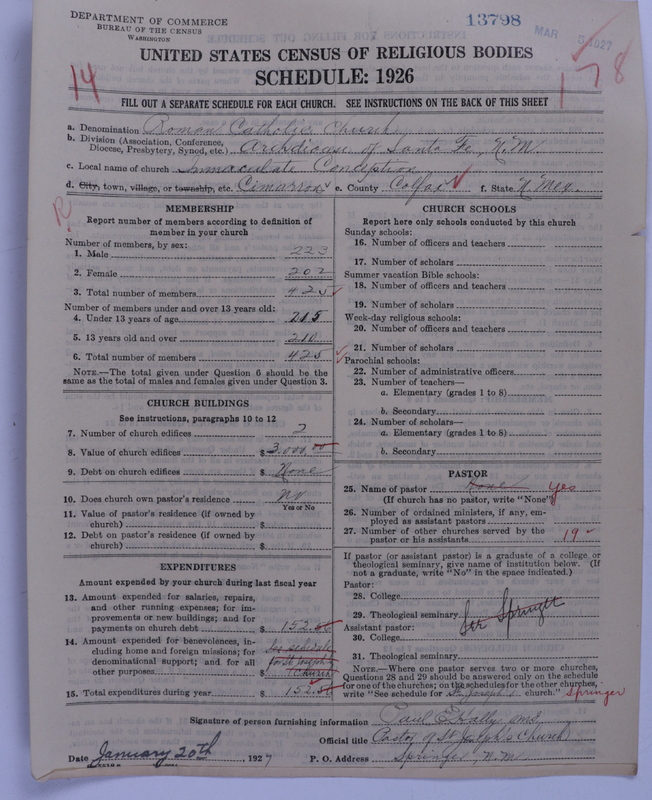 DEPARTMENT OF COMMERCE
BUREAU OF THE CENSUS
WASHINGTON
13798
MAR 5 1927
UNITED STATES CENSUS OF RELIGIOUS BODIES
SCHEDULE: 1926
14
178
FILL OUT A SEPARATE SCHEDULE FOR EACH CHURCH. SEE INSTRUCTIONS ON THE BACK OF THIS SHEET
a. Denomination Roman Catholic Church
b. Division (Association, Conference, Diocese, Presbytery, Synod, etc.) Archdiocese of Santa Fe, N.M.
c. Local name of church Immaculate Conception
d. City, town, village, or township, etc. Cimarron e. County Colfax f. State N. Mex.
MEMBERSHIP
Report number of members according to definition of
member in your church
Number of members, by sex:
1. Male 223
2. Female 202
3. Total number of members 425
Number of members under and over 13 years old:
4. Under 13 years of age 215
5. 13 years old and over 210
6. Total number of members 425
NOTE.—The total given under Question 6 should be the
same as the total of males and females given under Question 3.
CHURCH BUILDINGS
See instructions, paragraphs 10 to 12
7. Number of church edifices 2
8. Value of church edifices $ 3,000.00
9. Debt on church edifices $ None
10. Does church own pastor's residence No
Yes or No
11. Value of pastor's residence (if owned by
church) $
12. Debt on pastor's residence (if owned by
church) $
EXPENDITURES
Amount expended by your church during last fiscal year
13. Amount expended for salaries, repairs,
and other running expenses; for im-
provements or new buildings; and for
payments on church debt $ 152.50
14. Amount expended for benevolences, in-
cluding home and foreign missions; for
denominational support; and for all
other purposes $ See schedule for St Joseph's Church
15. Total expenditures during year $ 152.50
CHURCH SCHOOLS
Report here only schools conducted by this church
Sunday schools:
16. Number of officers and teachers
17. Number of scholars
Summer vacation Bible schools:
18. Number of officers and teachers
19. Number of scholars
Week-day religious schools:
20. Number of officers and teachers
21. Number of scholars
Parochial schools:
22. Number of administrative officers
23. Number of teachers—
a. Elementary (grades 1 to 8)
b. Secondary
24. Number of scholars—
a. Elementary (grades 1 to 8)
b. Secondary
PASTOR
25. Name of pastor None Yes
(If church has no pastor, write "None")
26. Number of ordained ministers, if any, em-
ployed as assistant pastors
27. Number of other churches served by the
pastor or his assistants 19
If pastor (or assistant pastor) is a graduate of a college or
theological seminary, give name of institution below. (If
not a graduate, write "No" in the space indicated.)
Pastor:
28. College
29. Theological seminary See Springer
Assistant pastor:
30. College
31. Theological seminary
NOTE.—Where one pastor serves two or more churches,
Questions 28 and 29 should be answered only on the schedule
for one of the churches; on the schedules for the other churches,
write "See schedule for St. Joseph's church." Springer
Signature of person furnishing information Paul E.
Official title Pastor of St Joseph's Church
Date January 20th, 1927 P. O. Address Springer, N.M.